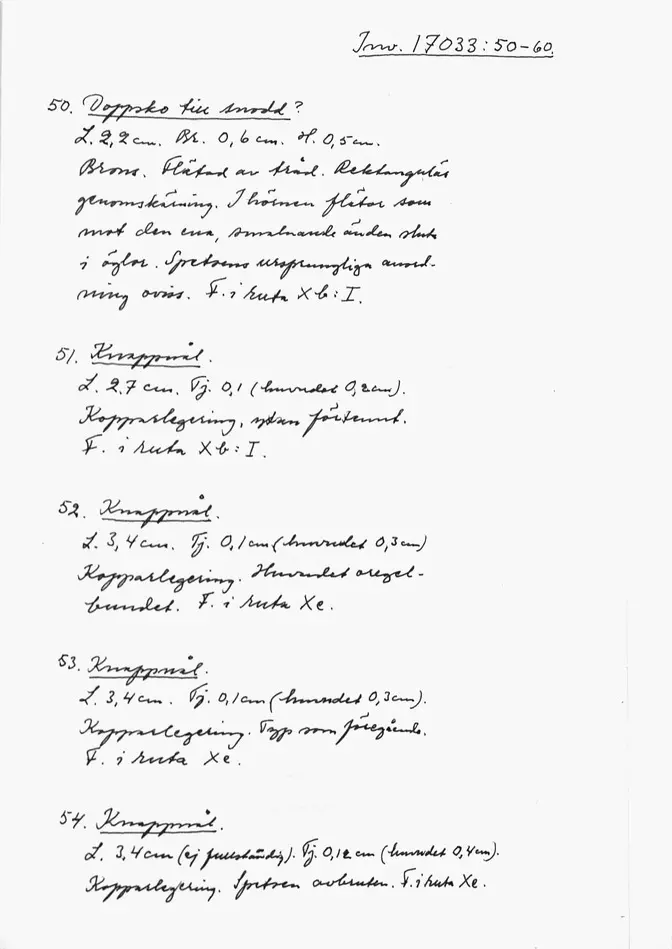 Inv. 17033:50-60.
50. Doppsko till snodd?
L. 2,2 cm. Br. 0,6 cm. H. 0,5 cm.
Brons. Flätad av tråd. Rektangulär
genomskärning. I hörnen flätor som
mot den ena, smalnande änden slutar
i öglor. Spetsens ursprungliga anord-
ning oviss. F. i ruta Xb:I.
51. Knappnål.
L. 2,7 cm. Tj. 0,1 (huvudet 0,2 cm).
Kopparlegering, ytan förtennt.
F. i ruta Xb:I.
52. Knappnål.
L. 3,4 cm. Tj. 0,1 cm (huvudet 0,3 cm)
Kopparlegering. Huvudet oregel-
bundet. F. i ruta Xe.
53. Knappnål.
L. 3,4 cm. Tj. 0,1 cm (huvudet 0,3 cm).
Kopparlegering. Typ som föregående.
F. i ruta Xe.
54. Knappnål.
L. 3,4 cm (ej fullständig). Tj. 0,12 cm (huvudet 0,4 cm).
Kopparlegering. Spetsen avbruten. F. i ruta Xe.